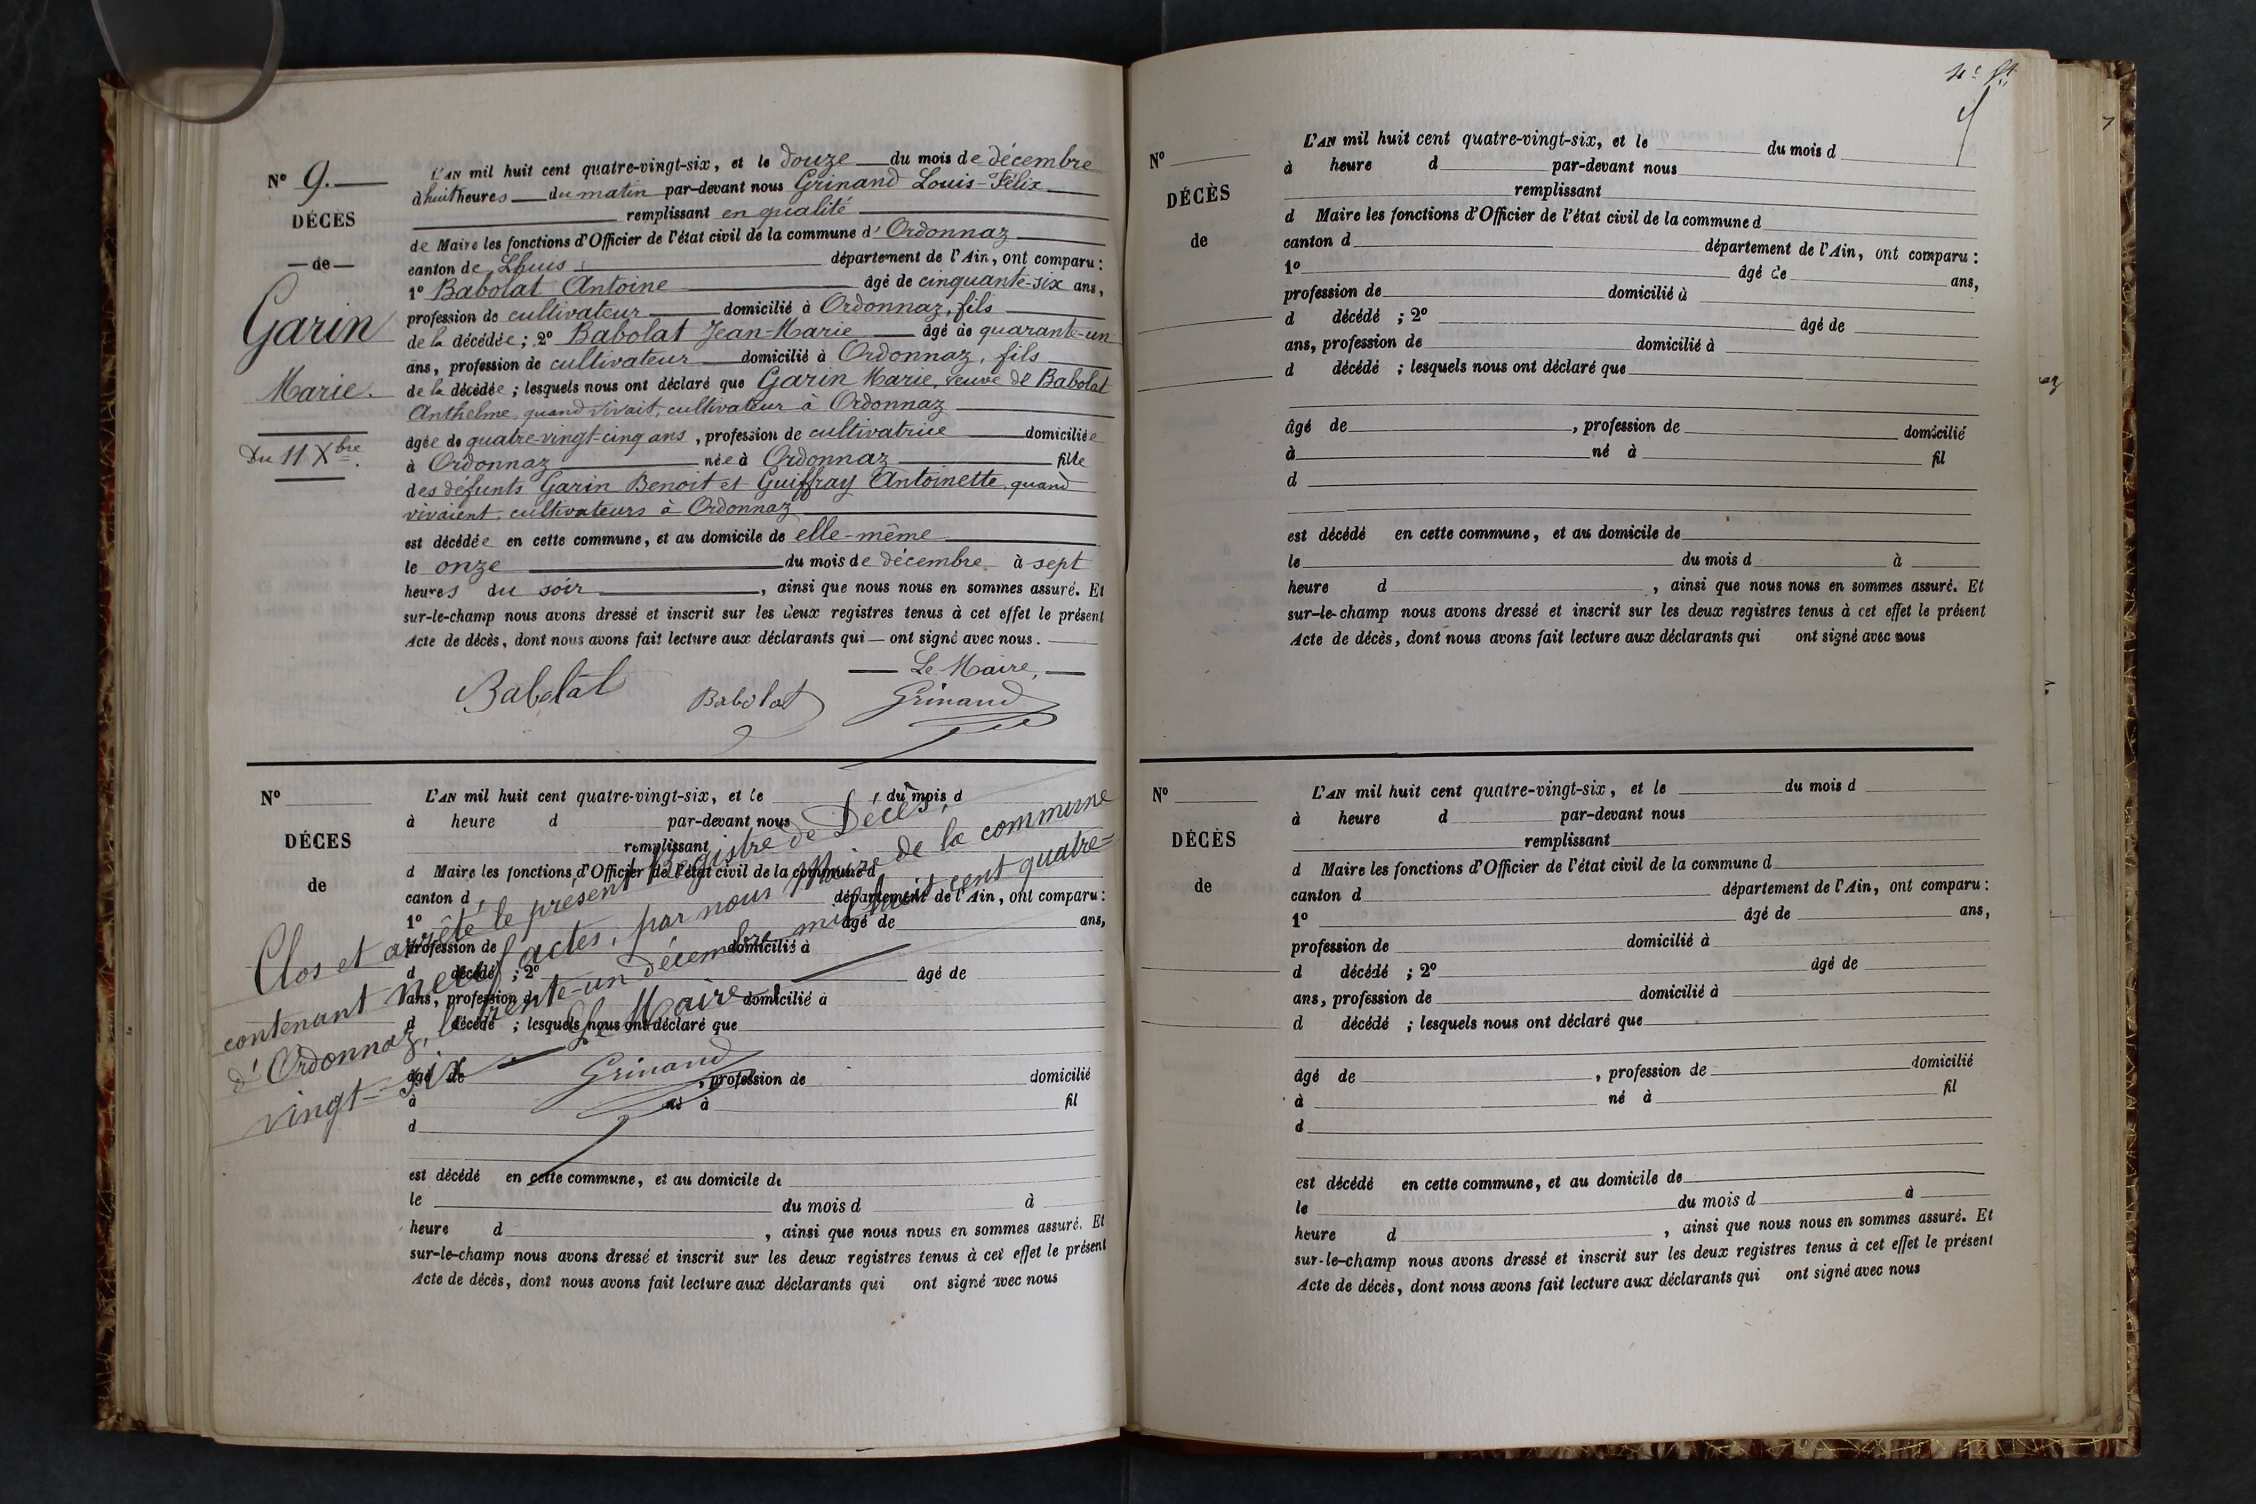 N° 9.
DÉCÈS
de
Garin
Marie.
Du 11 Xbre.
L'AN mil huit cent quatre-vingt-six, et le douze du mois de décembre
à huit heures du matin par-devant nous Grinand Louis-Félix
remplissant en qualité
de Maire les fonctions d'Officier de l'état civil de la commune d'Ordonnaz
canton de Lhuis département de l'Ain, ont comparu :
1° Babolat Antoine âgé de cinquante-six ans,
profession de cultivateur domicilié à Ordonnaz, fils
de la décédée ; 2° Babolat Jean-Marie âgé de quarante-un
ans, profession de cultivateur domicilié à Ordonnaz, fils
de la décédée ; lesquels nous ont déclaré que Garin Marie, veuve de Babolat
Anthelme, quand vivait, cultivateur à Ordonnaz
âgée de quatre-vingt-cinq ans, profession de cultivatrice domiciliée
à Ordonnaz née à Ordonnaz fille
des défunts Garin Benoit et Guiffray Antoinette, quand
vivaient, cultivateurs à Ordonnaz
est décédée en cette commune, et au domicile de elle-même
le onze du mois de décembre à sept
heures du soir, ainsi que nous nous en sommes assuré. Et
sur-le-champ nous avons dressé et inscrit sur les deux registres tenus à cet effet le présent
Acte de décès, dont nous avons fait lecture aux déclarants qui — ont signé avec nous.
Le Maire,
Babolat Babolat Grinand
N°
DÉCES
de
L'AN mil huit cent quatre-vingt-six, et le du mois d
à heure d par-devant nous
remplissant
d Maire les fonctions d'Officier de l'état civil de la commune d
canton d département de l'Ain, ont comparu :
1° âgé de ans,
profession de domicilié à
d décédé ; 2° âgé de
ans, profession de domicilié à
d décédé ; lesquels nous ont déclaré que
âgé de , profession de domicilié
à né à fil
d
est décédé en cette commune, et au domicile de
le du mois d à
heure d , ainsi que nous nous en sommes assuré. Et
sur-le-champ nous avons dressé et inscrit sur les deux registres tenus à cet effet le présent
Acte de décès, dont nous avons fait lecture aux déclarants qui ont signé avec nous
Clos et arrêté le présent Registre de Décès,
contenant neuf actes, par nous Maire de la commune
d'Ordonnaz, le trente-un décembre mil huit cent quatre-
vingt-six
Le Maire,
Grinand
N°
DÉCÈS
de
L'AN mil huit cent quatre-vingt-six, et le du mois d
à heure d par-devant nous
remplissant
d Maire les fonctions d'Officier de l'état civil de la commune d
canton d département de l'Ain, ont comparu :
1° âgé de ans,
profession de domicilié à
d décédé ; 2° âgé de
ans, profession de domicilié à
d décédé ; lesquels nous ont déclaré que
âgé de , profession de domicilié
à né à fil
d
est décédé en cette commune, et au domicile de
le du mois d à
heure d , ainsi que nous nous en sommes assuré. Et
sur-le-champ nous avons dressé et inscrit sur les deux registres tenus à cet effet le présent
Acte de décès, dont nous avons fait lecture aux déclarants qui ont signé avec nous
N°
DÉCÈS
de
L'AN mil huit cent quatre-vingt-six, et le du mois d
à heure d par-devant nous
remplissant
d Maire les fonctions d'Officier de l'état civil de la commune d
canton d département de l'Ain, ont comparu :
1° âgé de ans,
profession de domicilié à
d décédé ; 2° âgé de
ans, profession de domicilié à
d décédé ; lesquels nous ont déclaré que
âgé de , profession de domicilié
à né à fil
d
est décédé en cette commune, et au domicile de
le du mois d à
heure d , ainsi que nous nous en sommes assuré. Et
sur-le-champ nous avons dressé et inscrit sur les deux registres tenus à cet effet le présent
Acte de décès, dont nous avons fait lecture aux déclarants qui ont signé avec nous